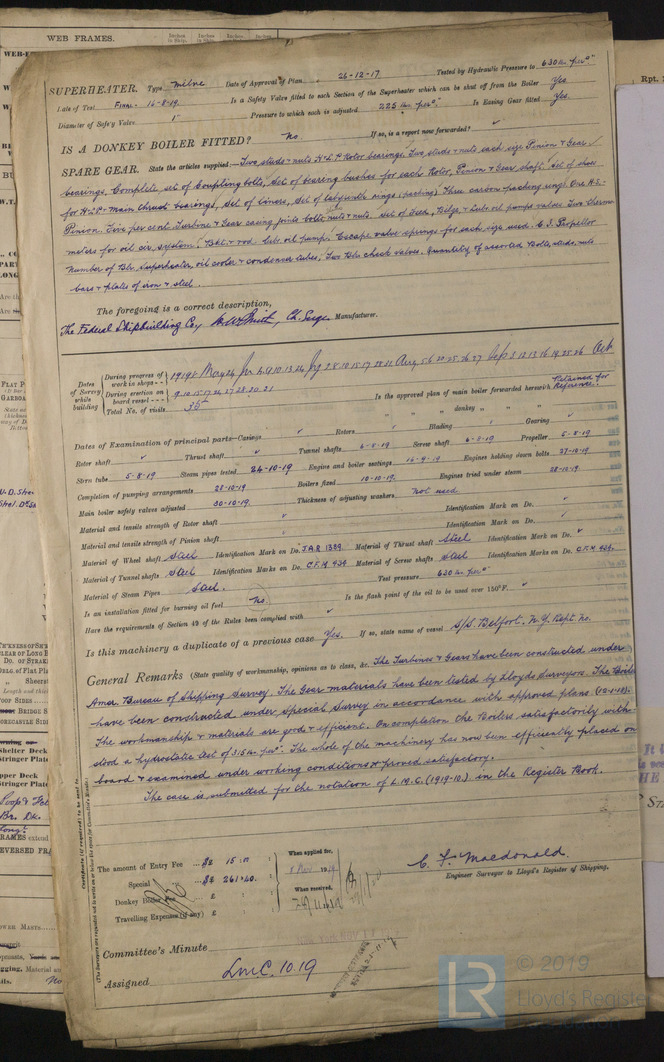 WEB FRAMES.
SUPERHEATER. Type Milne Date of Approval of Plan. 26-12-17 Tested by Hydraulic Pressure to 630 lbs per □"
Date of Test Final 16-8-19. Is a Safety Valve fitted to each Section of the Superheater which can be shut off from the Boiler Yes
Diameter of Safety Valve 1" Pressure to which each is adjusted 225 lbs. per □" Is Easing Gear fitted Yes.
IS A DONKEY BOILER FITTED? No If so, is a report now forwarded? ✓
SPARE GEAR. State the articles supplied:— Two studs & nuts H & L P Rotor bearings. Two studs & nuts each size Pinion & Gear
bearings, Complete set of Coupling bolts, Set of bearing bushes for each Rotor, Pinion & Gear shaft. Set of shoes
for H & L.P. & Main thrust bearings, Set of liners, Set of labyrinth rings (packing) Three carbon packing rings. One H.S.
Pinion. Five per cent. Turbine & Gear casing joints bolts & nuts. set of Feed, Bilge & Lub. oil pumps valves. Two Thermo-
meters for oil cir. system. Bkt. & rod Lub. oil pump. Escape valve springs for each size used. C.I. Propellor
Number of Blr. Superheater, oil cooler & condenser tubes, Two Blr. check valves. Quantity of assorted Bolts, studs, nuts
bars & plates of iron & steel.
The foregoing is a correct description,
The Federal Shipbuilding Co., Ch. Engr. Manufacturer.
Dates of Survey while building
During progress of work in shops -- 1919: May 24 Jun 4.9.10.13.24 Jy 2.8.10.15.17.28.11 Aug 5.6.20.25.26.27 Sep 3.12.13.16.19.25.26 Oct
During erection on board vessel --- 9.10.15.17.24.27.28.20.21
Total No. of visits 35
Is the approved plan of main boiler forwarded herewith Retained for Reference.
" " " donkey " " "
Dates of Examination of principal parts—Casings ✓ Rotors ✓ Blading ✓ Gearing ✓
Rotor shaft ✓ Thrust shaft ✓ Tunnel shafts 6-8-19 Screw shaft 6-8-19 Propeller 5-8-19
Stern tube 5-8-19 Steam pipes tested 24-10-19 Engine and boiler seatings 16-9-19 Engines holding down bolts 27-10-19
Completion of pumping arrangements 28-10-19 Boilers fixed 10-10-19. Engines tried under steam 28-10-19
Main boiler safety valves adjusted 30-10-19. Thickness of adjusting washers not used
Material and tensile strength of Rotor shaft ✓ Identification Mark on Do. ✓
Material and tensile strength of Pinion shaft ✓ Identification Mark on Do. ✓
Material of Wheel shaft Steel Identification Mark on Do. J.A.R 1389 Material of Thrust shaft Steel Identification Mark on Do. ✓
Material of Tunnel shafts Steel Identification Marks on Do. C.F.M 439 Material of Screw shafts Steel Identification Marks on Do. C.F.M. 439.
Material of Steam Pipes Steel. Test pressure 630 lbs. per □"
Is an installation fitted for burning oil fuel No. Is the flash point of the oil to be used over 150°F. ✓
Have the requirements of Section 49 of the Rules been complied with ✓
Is this machinery a duplicate of a previous case Yes. If so, state name of vessel S/S. Belfort. N.Y. Rept. No.
General Remarks (State quality of workmanship, opinions as to class, &c. The Turbines & Gears have been constructed under
Amer. Bureau of Shipping Survey. The Gear materials have been tested by Lloyds Surveyors. The Boilers
have been constructed under Special Survey in accordance with approved plans (10-1-18).
The workmanship & materials are good & efficient. On completion the Boilers satisfactorily with-
stood a hydrostatic test of 315 lbs. per □". The whole of the machinery has now been efficiently placed on
board & examined under working conditions & proved satisfactory.
The case is submitted for the notation of L.M.C. (1919-10). in the Register Book.
The amount of Entry Fee ... £ 15 : 00
Special ... £ 261 : 40
Donkey Boiler Fee ... £ : :
Travelling Expenses (if any) £ : :
When applied for,
When received,
C. F. Macdonald.
Engineer Surveyor to Lloyd's Register of Shipping.
Committee's Minute
Assigned LMC. 10.19
LR
© 2019
Lloyd's Register